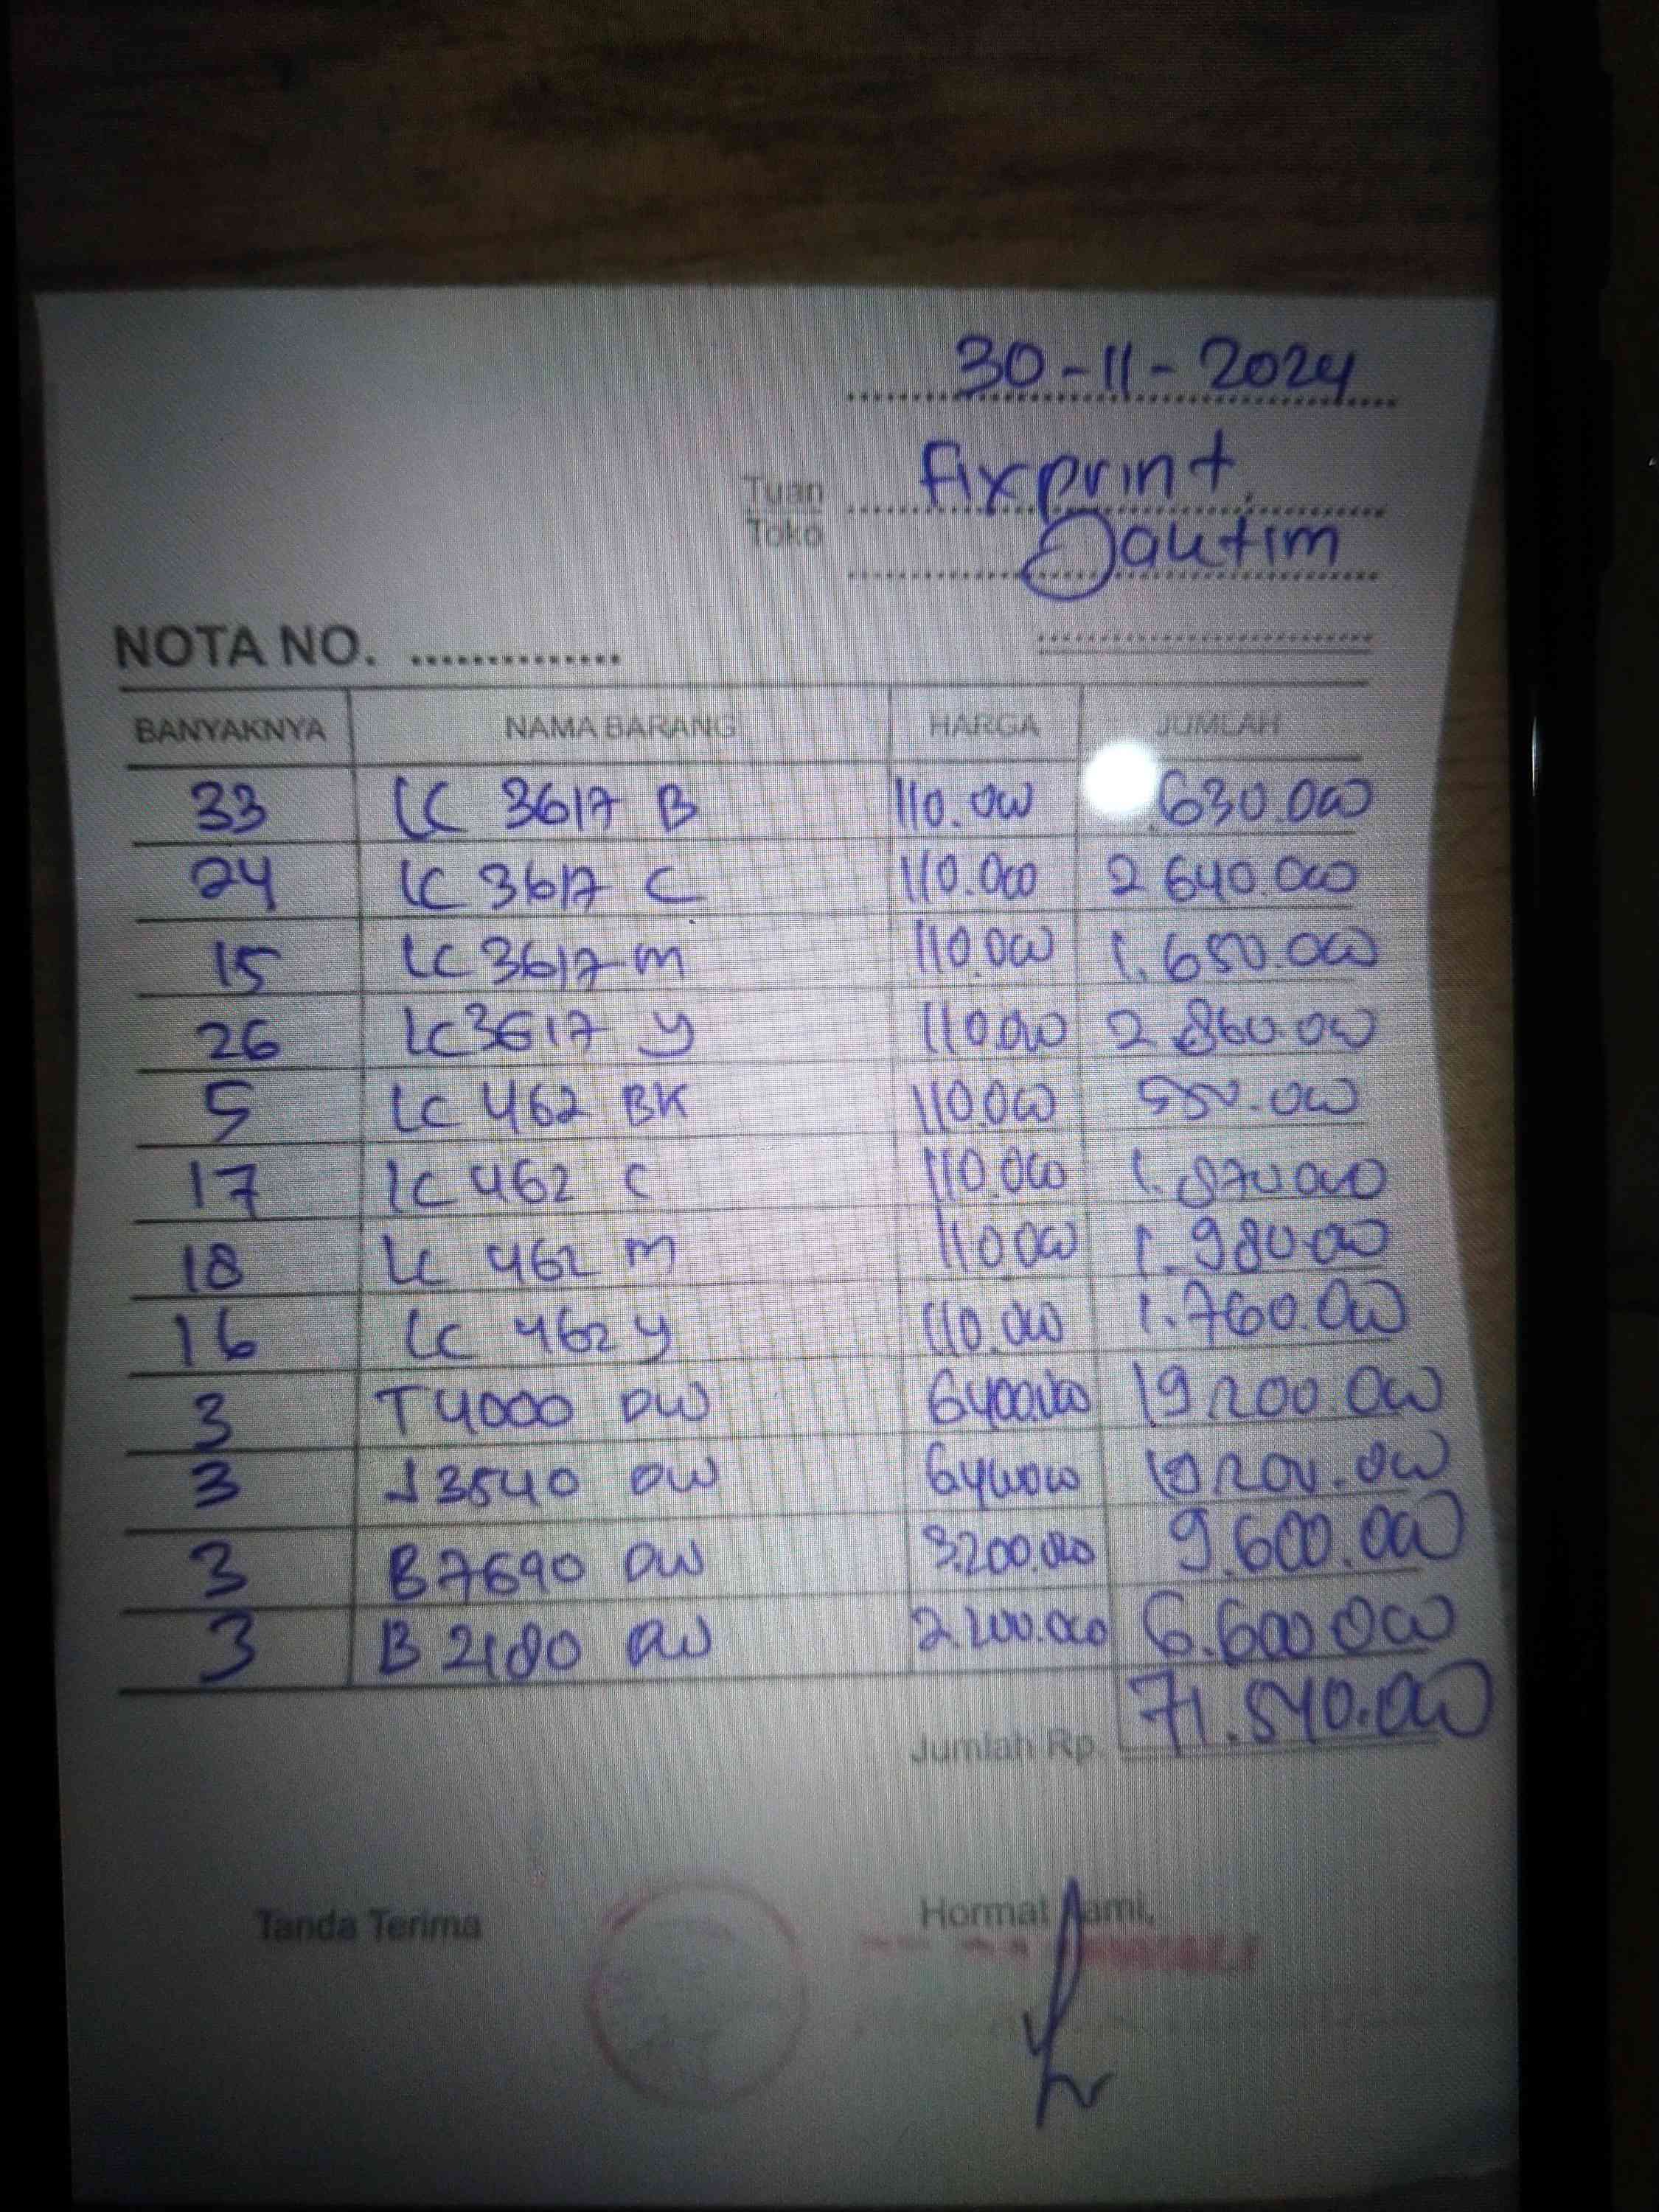 30-11-2024
Tuan Fixprint
Toko Jaktim
NOTA NO. ..............
BANYAKNYA NAMA BARANG HARGA JUMLAH
33 LC 3617 B 110.000 .630.000
24 LC 3617 C 110.000 2 640.000
15 LC 3617 m 110.000 1.650.000
26 LC 3617 y 110.000 2.860.000
5 LC 462 BK 110.000 550.000
17 LC 462 C 110.000 1.870.000
18 LC 462 m 110.000 1.980.000
16 LC 462 y 110.000 1.760.000
3 T4000 DW 6400.000 19.200.000
3 J3540 DW 6400.000 19.200.000
3 B7690 DW 3.200.000 9.600.000
3 B2180 DW 2.200.000 6.600.000
Jumlah Rp. 71.540.000
Tanda Terima Hormat Kami,